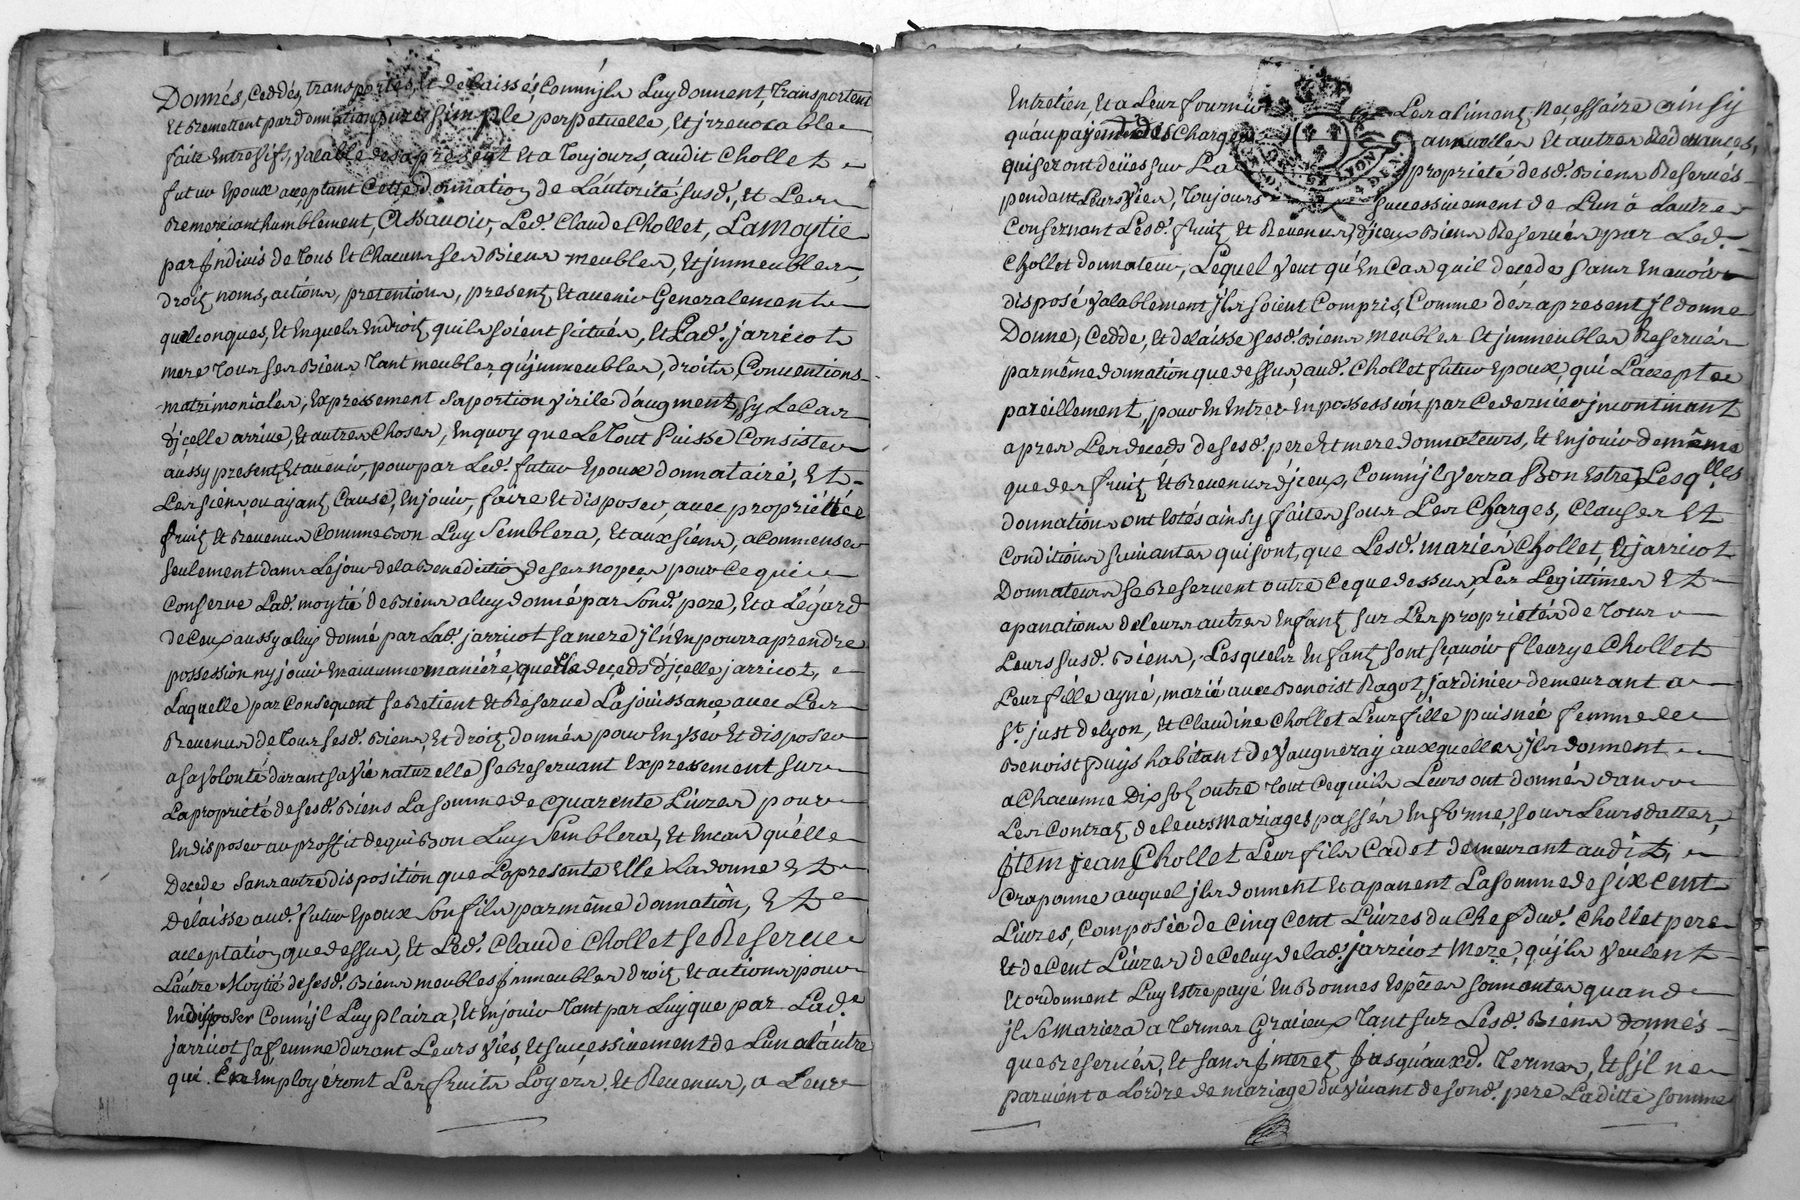 Donnés, Ceddés, transportés, et delaissés, Comm'jls Luy donnent, transportent
Et Bremettent par donnation pure simple perpetuelle, et jrrevocable
faite Entre vifs, valable des apresent Et a toujours, audit Chollet
futur Epoux acceptant Cette donnation de Lautorité susd., et Les
Remerciant humblement, Assavoir, Led. Claude Chollet, La Moytié
par Indivis de tous Et Chacuns ses Biens meubles, Et jmmeubles,
droits, noms, actions, pretentions, present Et avenir Generalement
quelconques, Et En quels Endroits, quils soient scitués, et Lad. jarricot
mere tous ses Biens tant meubles, qu'jmmeubles, droits, Conventions
matrimoniales, Expressement sa portion virile d'augment, sy Le Cas
d'jcelle arrive, Et autres Choses, En quoy que Le tout Puisse Consister
aussy present Et avenir, pour par Led. futur Epoux donnataire, Et
Les siens, ou ayant Cause, En jouir, faire Et disposer, avec proprietté
fruits Et Revenus Comme Bon Luy Semblera, Et aux siens, a Commenser
seulement dans Lejour de la Benediction de ses nopces pour Ce qui
Conserne Lad. moytié de Biens a luy donné par Sond. pere, Et a L'égard
de Ceux aussy a luy donné par Lad. jarricot sa mere jl n'En pourra prendre
possession ny jouir En aucunne maniére, que Le decéds d'jcelle jarricot,
Laquelle par Consequent se Retient Et Reserve La jouissance, avec Les
Revenus de tous sesd. Biens, Et droits donnés, pour En User Et disposer
a sa volonté durant sa vie naturelle, se Reservant Expressement sur
La proprieté de sesd. Biens La somme de quarente Livres pour
En disposer au proffit de qui Bon Luy Semblera, Et En cas qu'elle
Decede sans autre disposition que La presente Elle La donne Et
Delaisse aud. futur Epoux son fils par même donnation, Et
acceptation que dessus, Et Led. Claude Chollet se Reserve
L'autre Moytié de sesd. Biens meubles jmmeubles droits Et actions pour
En disposer Comm'jl Luy plaira, Et En jouir tant par Luy que par Lad.e
jarricot sa femme durant Leurs vies, Et successivement de L'un a l'autre
qui En Employéront Les fruits Loyers, Et Revenus, a Leur
Entretien, Et a Leur fournir Les aliments Necessaire ainsy
qu'au payement des Charges annuelles Et autres Redevances,
qui seront deües sur La proprieté desd. Biens Reservés
pendant Leurs vies, Toujours successivement de L'un à L'autre
Consernant Lesd. fruits, Et Revenus d'jceux Biens Reservés par Led.
Chollet donnateur, Lequel veut qu'En Cas quil decede sans En avoir
disposé valablement jls soient Compris, Comme dés apresent jl donne
Donne, Cedde, Et delaisse sesd. Biens meubles Et jmmeubles Reservés
par même donnation que dessus, aud. Chollet futur Epoux, qui L'accepte
pareillement, pour En Entrer En possession par Ce dernier jncontinant
apres Les decéds de sesd. pere Et mere donnateurs, Et En jouir de même
que des fruits Et Revenus d'jceux, Comm'jl verra Bon Estre, Lesq.lles
donnations ont Estés ainsy faites sous Les Charges, Clauses Et
Conditions suivantes qui sont, que Lesd. mariés Chollet, Et jarricot
Donnateurs se Reservent outre Ce que dessus, Les Legittimes Et
apanations de leurs autres Enfants sur Les proprietés de tous
Leurs susd. Biens, Lesquels Enfants sont sçavoir fleurye Chollet
Leur fille aynée, marié avec Benoist Ragot, jardinier demeurant a
S.t just de lyon, et Claudine Chollet Leur fille puisnée femme de
Benoist Puys habitant de Vaugneray auxquelles jls donnent
a Chacunne Dix sols outre tout Ce quils Leurs ont donnés dans
Les Contrats de leurs mariages passés En forme, sous Leurs dattes,
jtem jean Chollet Leur fils Cadet demeurant audit,
Craponne auquel jls donnent Et apanent La somme de six cent
Livres, Composée de Cinq cent Livres du Chef dud. Chollet pere
Et de Cent Livres de Celuy de lad. jarricot Mere, qu'jls veulent
Et ordonnent Luy Estre payé En Bonnes Espéces sonnantes quand
jl se mariera a termes Gracieux tant sur Lesd. Biens donnés
que Reservés, Et sans jnterets jusqu'auxd. termes, Et s'jl ne
parvient a Lordre de mariage du vivant de sond. pere La ditte somme